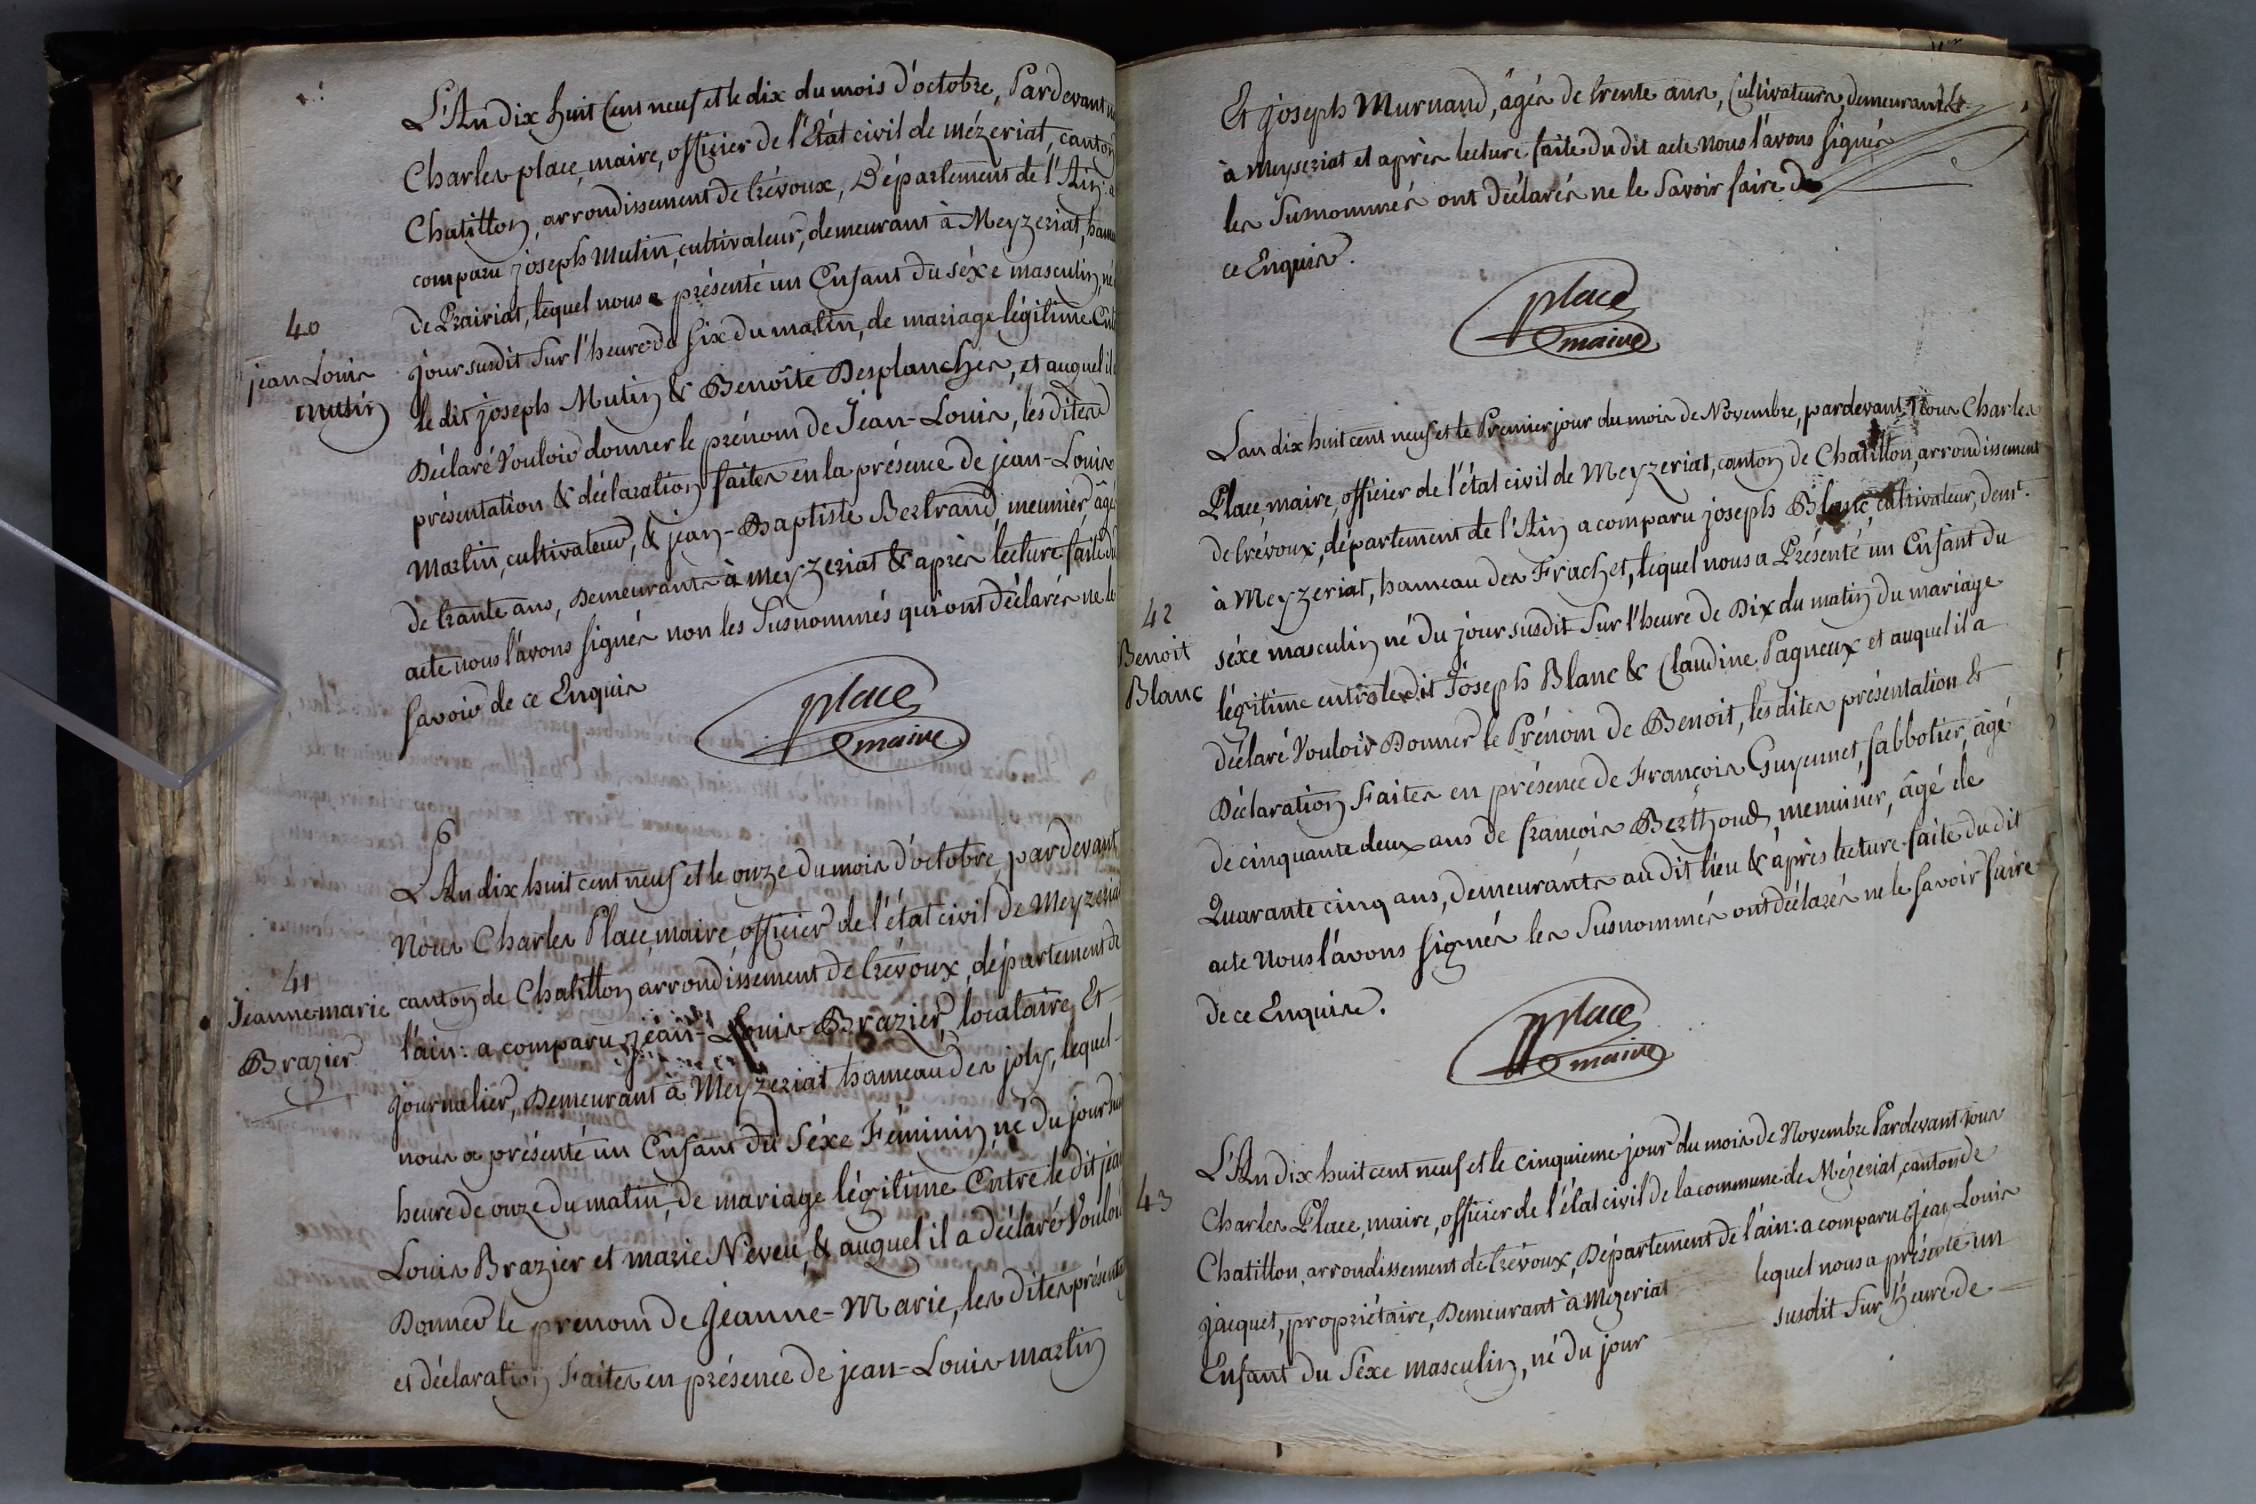 L'An dix huit Cent neuf et le dix du mois d'octobre, Pardevant
Charles place, maire, officier de l'Etat civil de mézeriat, canton
Chatillon, arrondissement de trévoux, Département de l'Ain: a
comparu joseph Mutin, cultivateur, demeurant à Meyzeriat, hameau
de Prairiat, lequel nous a présenté un Enfant du séxe masculin, né
40
jour susdit Sur l'heure de six du matin, de mariage légitime Entre
jean Louis
mutin
le dit joseph Mutin & Benoîte Desplanches, et auquel il
Déclaré Vouloir donner le prénom de Jean-Louis, les dites
présentation & déclaration faites en la présence de jean-Louis
Martin, cultivateur, & jean-Baptiste Bertrand, meunier, âgé
de trante ans, Demeurants à Meyzeriat & après lecture faite du
acte nous l'avons signés non les Susnommés qui ont déclarés ne le
savoir de ce Enquis
place
maire
L'An dix huit cent neuf et le onze du mois d'octobre, pardevant
Nous Charles Place, maire, officier de l'état civil de Meyzeriat
41
Jeanne-marie
Brazier
canton de Chatillon arrondissement de trévoux, département de
l'ain: a comparu jean-Louis Brazier, locataire Et
journalier, Demeurant à Meyzeriat hameau des jolys, lequel
nous a présenté un Enfant du Séxe Féminin né du jour
heure de onze du matin, de mariage légitime Entre le dit jean
Louis Brazier et marie Neveu, & auquel il a déclaré Vouloir
Donner le prénom de Jeanne-Marie, les dites
et déclaration Faites en présence de jean-Louis martin
Et joseph Murnand, âgés de trente ans, Cultivateurs, demeurants
à Meyseriat et après lecture faite du dit acte Nous l'avons signés
les Susnommés ont déclarés ne le Savoir faire de
ce Enquis.
place
maire
L'an dix huit cent neuf et le Premier jour du mois de Novembre, pardevant Nous Charles
Place, maire, officier de l'état civil de Meyzeriat, canton de Chatillon, arrondissement
de trévoux, département de l'Ain a comparu joseph Blanc, cultivateur, demt.
à Meyzeriat, hameau des Frachet, lequel nous a Présenté un Enfant du
42
Benoit
Blanc
séxe masculin né du jour susdit Sur l'heure de Dix du matin du mariage
légitime entre le dit Joseph Blanc & Claudine Pagneux et auquel il a
déclaré Vouloir Donner le Prénom de Benoit, les dites présentation Et
Déclaration Faites en présence de François Guyennet, sabbotier, âgé
de cinquante deux ans de françois Berthoud, menuisier, âgé de
Quarante cinq ans, demeurants au dit lieu & après lecture faite du dit
acte Nous l'avons signés les Susnommés ont déclarés ne le savoir faire
de ce Enquise.
place
maire
L'An dix huit cent neuf et le cinquieme jour du mois de Novembre Pardevant Nous
43
Charles Place, maire, officier de l'état civil de la commune de Mézeriat, canton de
Chatillon, arrondissement de trévoux, Département de l'ain: a comparu Jean Louis
jacquet, propriétaire, Demeurant à Mezeriat lequel nous a présenté un
Enfant du Séxe masculin, né du jour susdit Sur l'heure de